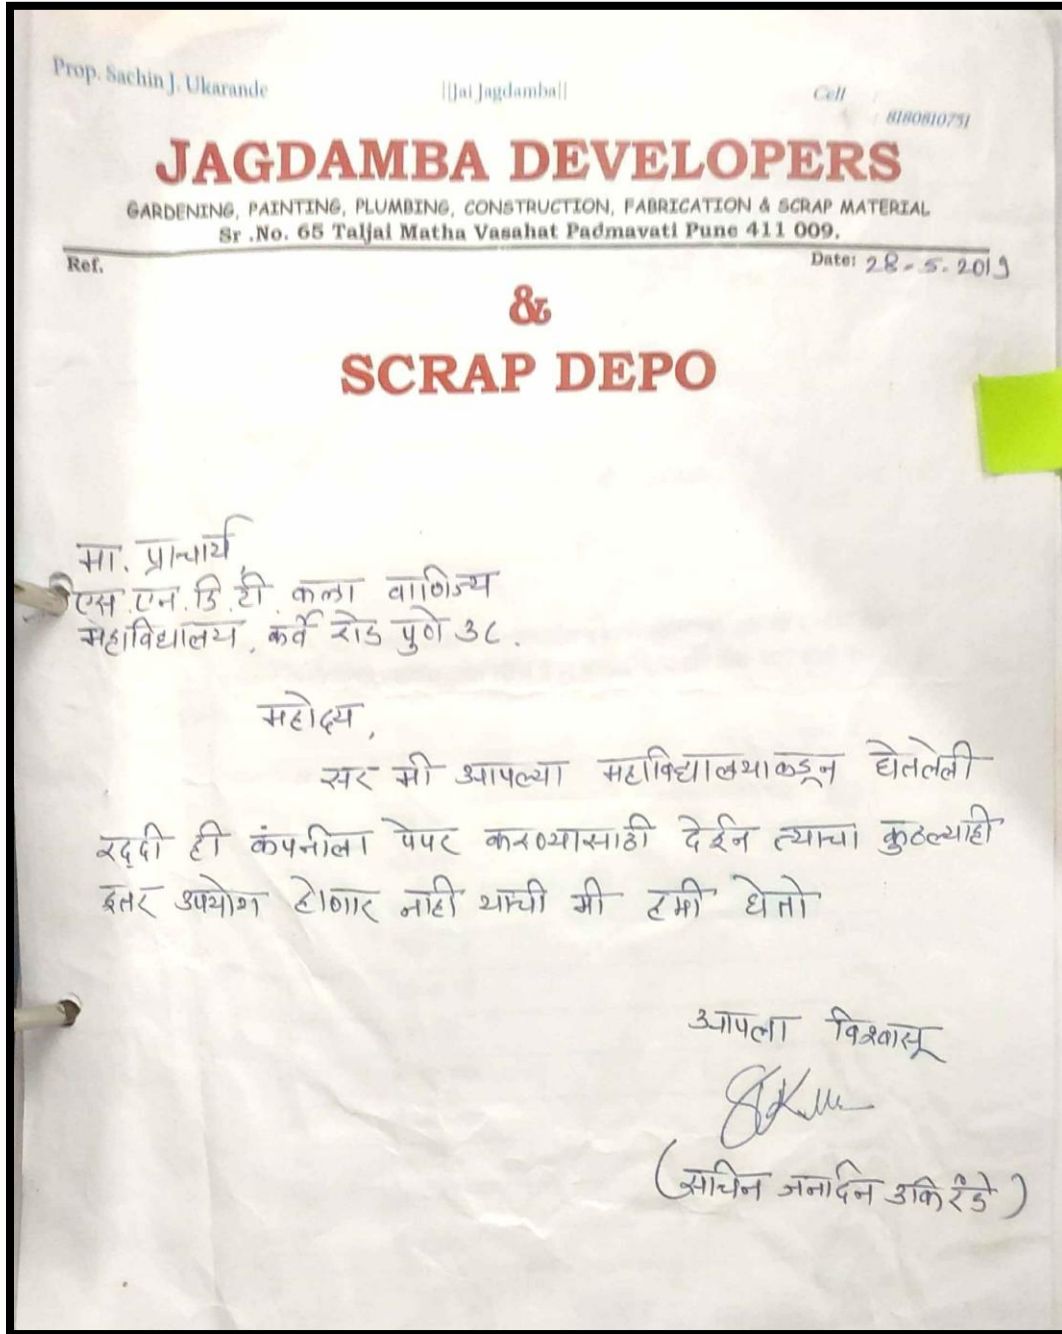 Prop. Sachin J. Ukarande
||Jai Jagdamba||
Cell :
: 8180810751
JAGDAMBA DEVELOPERS
GARDENING, PAINTING, PLUMBING, CONSTRUCTION, FABRICATION & SCRAP MATERIAL
Sr .No. 65 Taljai Matha Vasahat Padmavati Pune 411 009.
Ref.
Date: 28-5-2019
&
SCRAP DEPO
मा. प्राचार्य,
एस.एन.डि.टी. कला वाणिज्य
महाविद्यालय, कर्वे रोड पुणे ३८.
महोदय,
सर मी आपल्या महाविद्यालयाकडून घेतलेली
रद्दी ही कंपनीला पेपर करण्यासाठी देईन त्याचा कुठल्याही
इतर उपयोग होणार नाही याची मी हमी घेतो
आपला विश्वासू
(सचिन जनार्दन उकिरंडे)